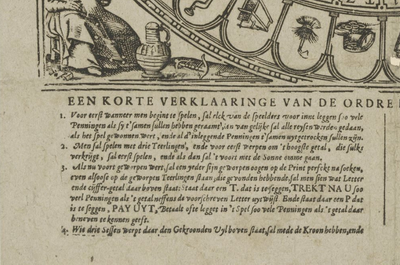 EEN KORTE VERKLAARINGE VAN DE ORDRE
1. Voor eerst wanneer men begint te spelen, sal elck van de speelders voor inne leggen soo vele
Penningen als sy t'samen sullen hebben geraamt, en van gelijke sal alle reysen werden gedaan,
als het spel gewonnen wert, ende al d'inleggende Penningen t'samen uytgetrocken sullen zijn.
2. Men sal spelen met drie Teerlingen, ende voor eerst werpen om 't hoogste getal, die sulks
verkrijgt, sal eerst spelen, ende als dan sal 't voorts met de Sonne omme gaan.
3. Als nu voort geworpen wert, sal een yeder sijn geworpen oogen op de Print perfect na soeken,
even alsoo op de geworpen Teerlingen staan, die gevonden hebbende, sal men sien wat Letter
ende cijffer-getal daar boven staat: staat daar een T. dat is te seggen, TREKT NA U soo
veel Penningen als 't getal neffens de voorschreven Letter uytwijst. Ende staat daar een P dat
is te seggen, PAY UYT, Betaalt ofte legget in 't Spel soo vele Penningen als 't getal daar
beneven te kennen geeft.
4. Wie drie Sessen werpt daar den Gekroonden Uyl boven staat, sal meede de Kroon hebben, ende